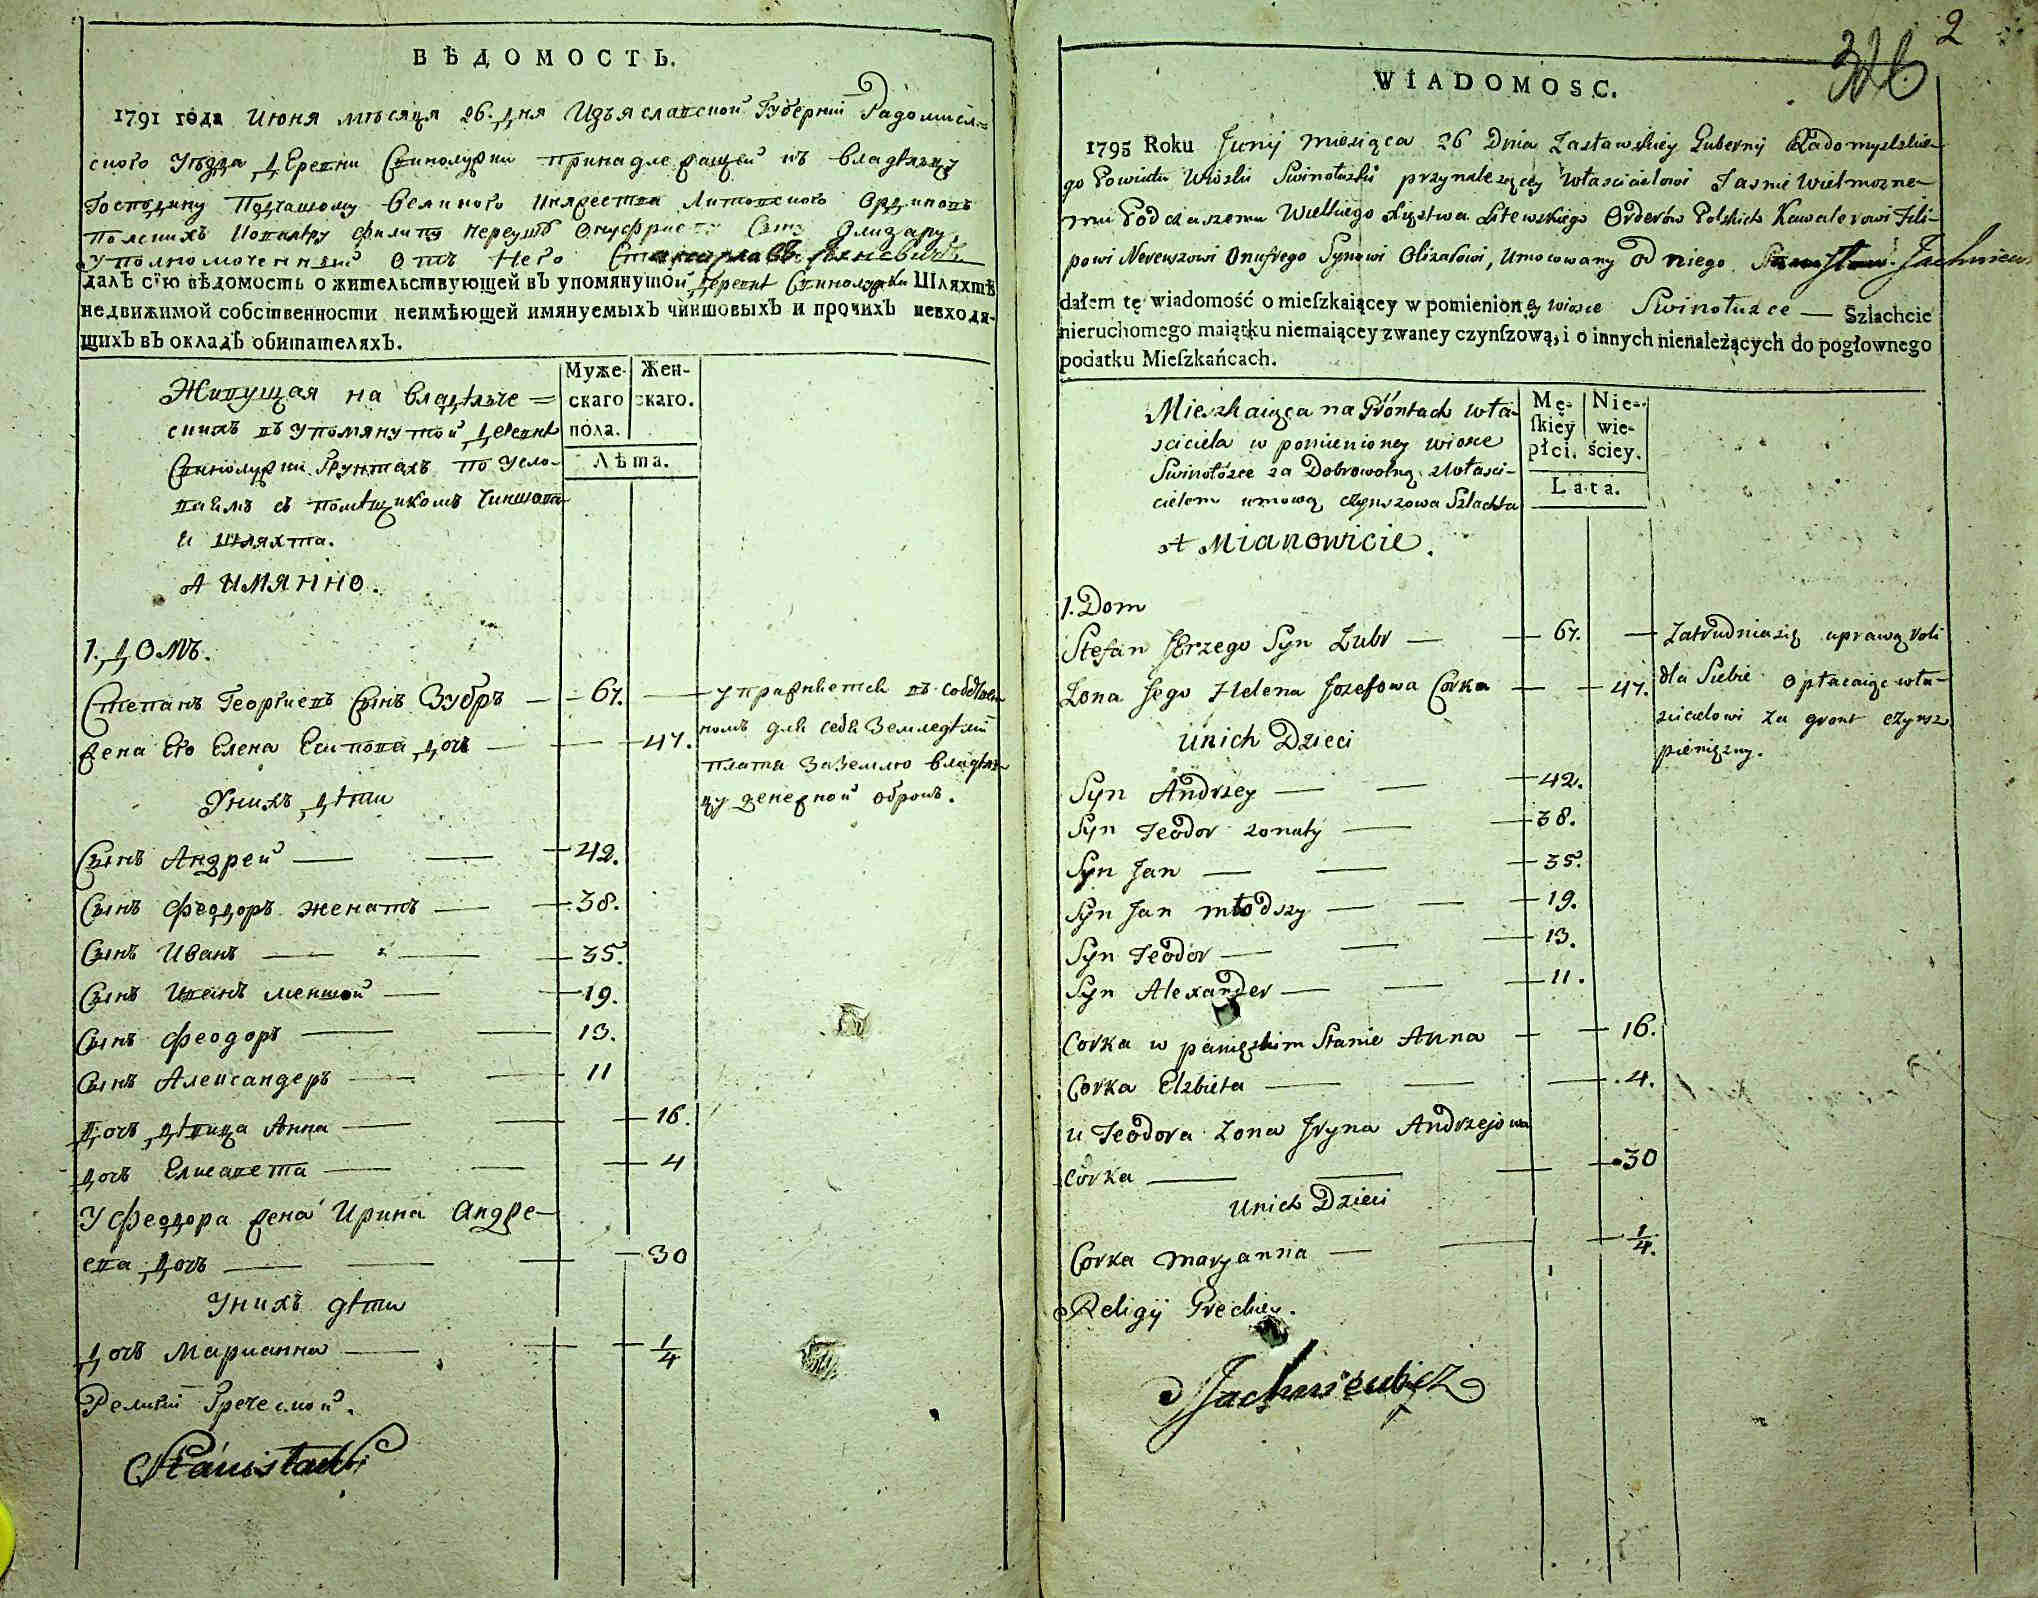 ВѢДОМОСТЬ.
1791 года Июня мѣсяца 26. дня Изъяславской Губернїи Радомисл=
ского Уѣзда Деревни Свинолужки принадлежащей къ владѣлцу
Господину Подчашому Великого Княжества Литовского Ординовъ
Полскихъ Кавалѣру Филипу Нереушѣ Онуфриеву Сыну Олизару,
Уполномоченный отъ Него
далъ сїю вѣдомость о жительствующей въ упомянутой деревнѣ Свинолужки Шляхтѣ
недвижимой собственности неимѣющей имянуемыхъ чиншовыхъ и прочихъ невходя-
щихъ въ окладъ обитателяхъ.
Живущая на владѣлче=
скихъ въ упомянутой деревнѣ
Свинолужки Грунтахъ по Усло-
виямъ съ помѣщикомъ Чиншова-
я шляхта.
А имянно.
Муже-
скаго
пола.
Жен-
скаго.
Лѣта.
1. Домъ.
Степанъ Георгиевъ Сынъ Зубръ — 67.
Жена Его Елена Есипова дочь — 47.
упражняется въ собствен-
номъ для себя Земледѣлїи
платя за землю владѣл-
цу денежной оброкъ.
У нихъ дѣти
Сынъ Андрей — 42.
Сынъ Феодоръ женатъ — 38.
Сынъ Иванъ — 35.
Сынъ Иванъ меншой — 19.
Сынъ Феодоръ — 13.
Сынъ Александеръ — 11
Дочь дѣвица Анна — 16.
Дочь Елисавета — 4
У Феодора жена Ирина Андре-
ева дочь — 30
У нихъ дѣти
Дочь Марианна — 1/4
Религїи Греческой.
Stanisław
2
326
WIADOMOSC.
1795 Roku Junij miesiąca 26 Dnia Zasławskiey Gubernij Radomyslskie-
go Powiatu Wioski Swinołuski przynależący Własciciełowi Jasnie Wielmozne-
mu Podczaszemu Wielkiego Xięstwa Litewskiego Orderów Polskich Kawalerowi Fili-
powi Nereuszowi Onufrego Synowi Olizarowi, Umocowany od niego Stanisław Jachniewi
dałem tę wiadomość o mieſzkaiącey w pomienioney wiosce Swinołusce — Szlachcie
nieruchomego maiątku niemaiącey zwaney czynſzową, i o innych nienależących do pogłownego
podatku Mieſzkańcach.
Mieszkaiąca na Gróntach wła-
sciciela w pomienioney wiosce
Swinołózce za Dobrowolną z Własci-
cielem umową czynszowa Szlachta
A Mianowicie.
Mę-
ſkiey
płci.
Nie-
wie-
ściey.
Lata.
1. Dom
Stefan Jerzego Syn Zubr — 67.
Zona Jego Helena Jozefowa Corka — 47.
Zatrudnia się uprawą roli
dla Siebie opłacaiąc wła-
scicielowi za gront czynsz
pieniężny.
U nich Dzieci
Syn Andrzey — 42.
Syn Teodor zonaty — 38.
Syn Jan — 35.
Syn Jan młodszy — 19.
Syn Teodor — 13.
Syn Alexander — 11.
Corka w panięskim Stanie Anna — 16.
Corka Elzbieta — 4.
u Teodora Zona Iryna Andrzejowa
corka — 30
U nich Dzieci
Corka Maryanna — 1/4.
Religij Greckiey.
Jachniewicz